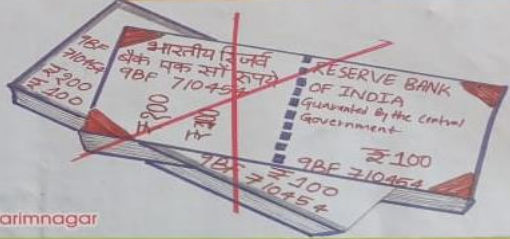 9BF
710454
₹200
₹100
भारतीय रिजर्व
बैंक एक सौ रुपये
9BF 710454
₹200
₹100
RESERVE BANK
OF INDIA
Guaranted By the Central
Government
₹100
9BF 710454
9BF ₹100
710454
arimnagar